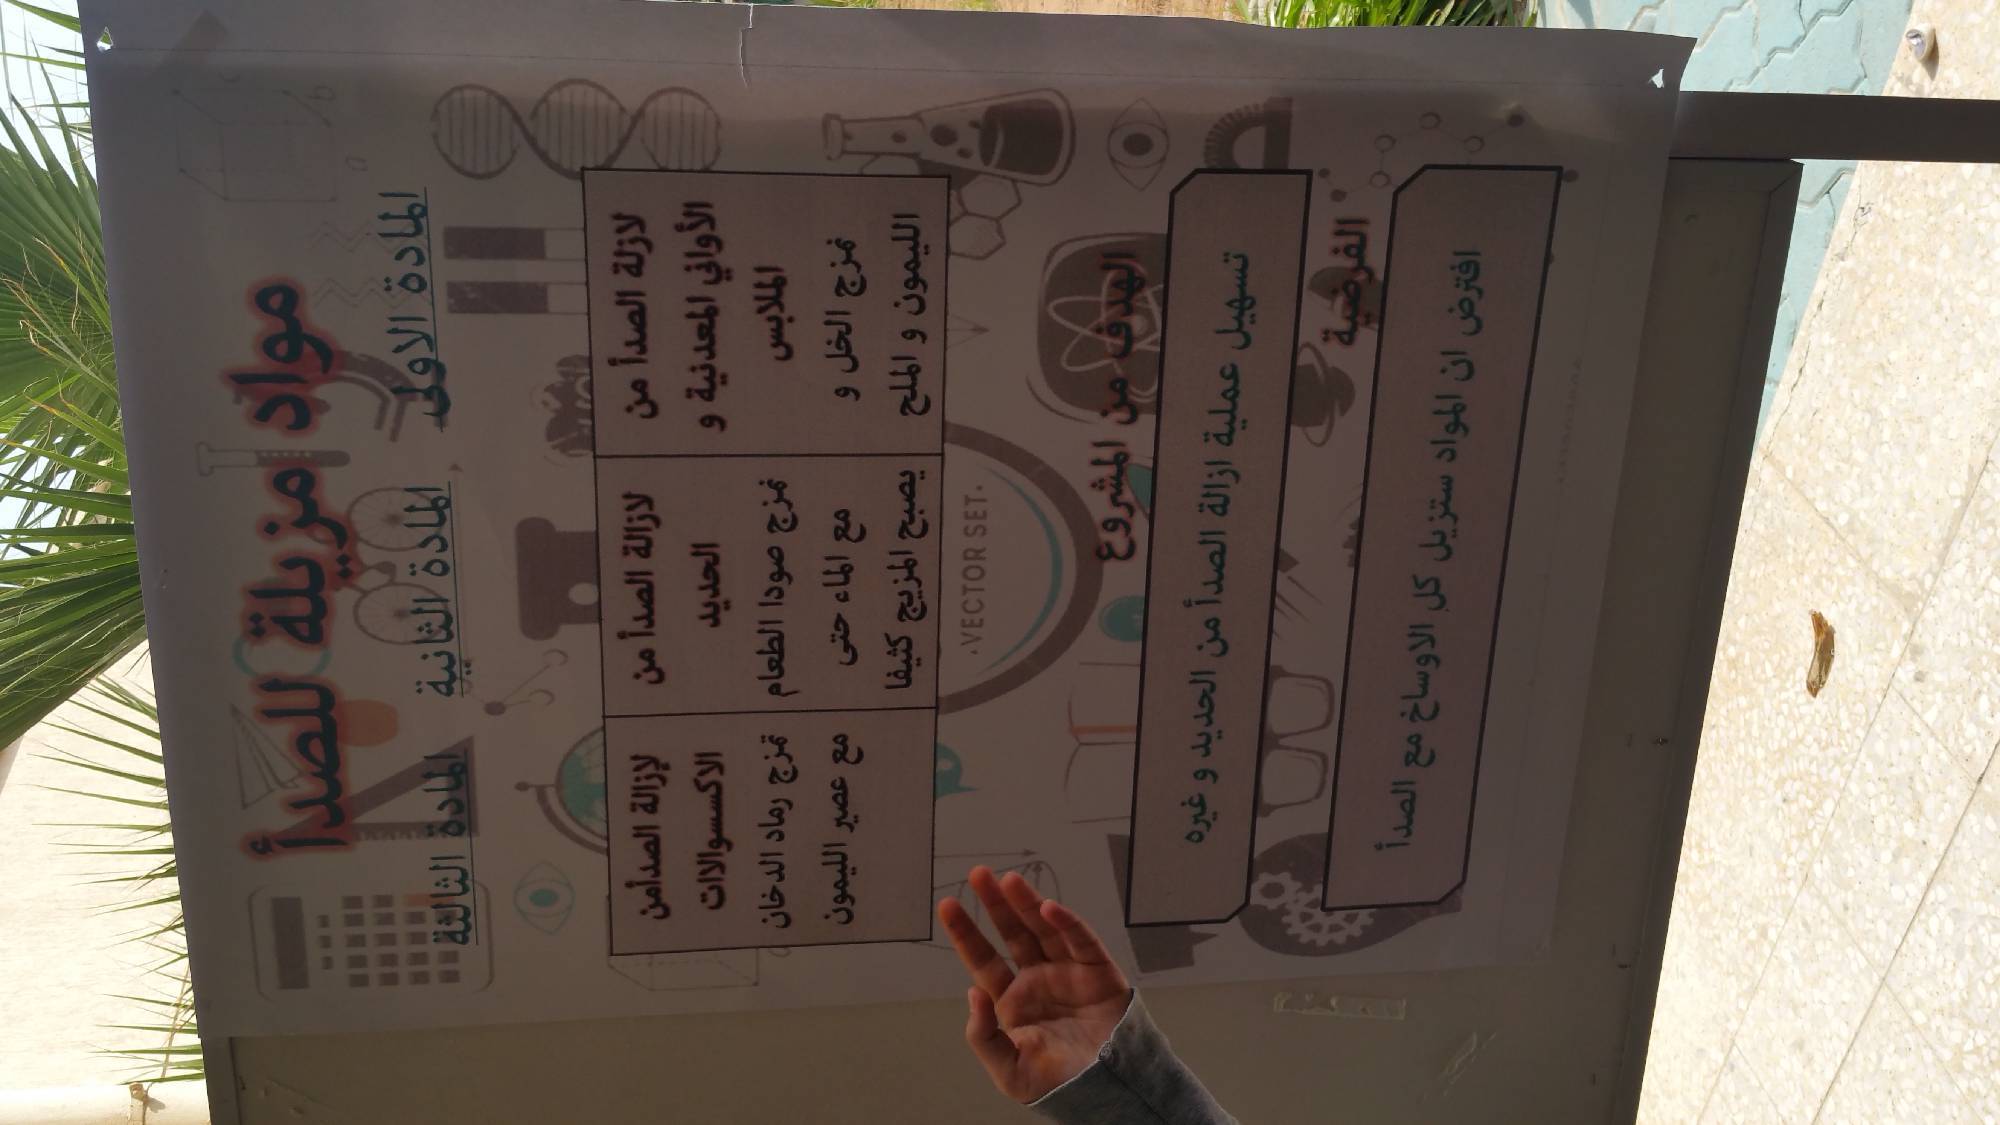 مواد مزيلة للصدأ
المادة الاولى
المادة الثانية
المادة الثالثة
لازلة الصدأ من
الأواني المعدنية و
الملابس
نمزج الخل و
الليمون و الملح
لازالة الصدأ من
الحديد
نمزج صودا الطعام
مع الماء حتى
يصبح المزيج كثيفا
لإزالة الصدأمن
الاكسسوالات
نمزج رماد الدخان
مع عصير الليمون
.VECTOR SET.
الهدف من المشروع
تسهيل عملية ازالة الصدأ من الحديد و غيره
الفرضية
افترض ان المواد ستزيل كل الاوساخ مع الصدأ